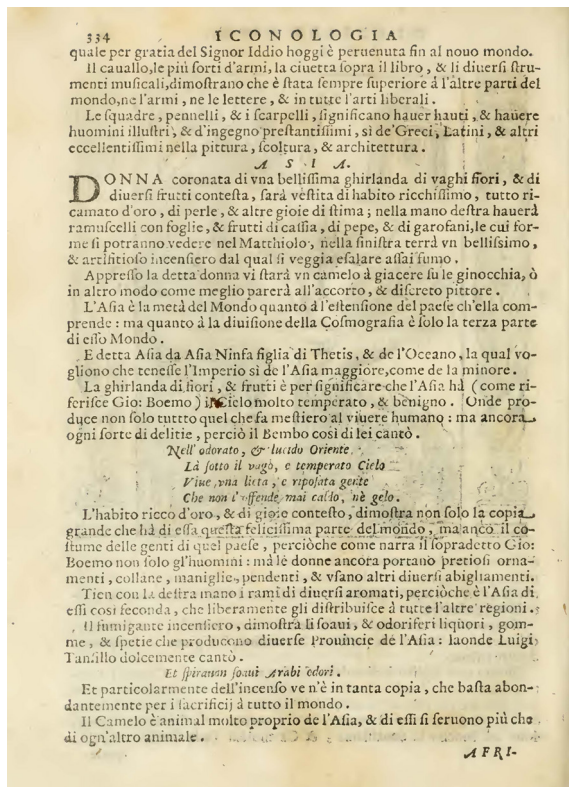 334 ICONOLOGIA
quale per gratia del Signor Iddio hoggi è peruenuta fin al nouo mondo.
Il cauallo, le più sorti d'armi, la ciuetta sopra il libro, & li diuersi stru-
menti musicali, dimostrano che è stata sempre superiore á l'altre parti del
mondo, ne l'armi, ne le lettere, & in tutte l'arti liberali.
Le squadre, pennelli, & i scarpelli, significano hauer hauti, & hauere
huomini illustri, & d'ingegno prestantissimi, sì de' Greci, Latini, & altri
eccellentissimi nella pittura, scoltura, & architettura.
ASIA.
DONNA coronata di vna bellissima ghirlanda di vaghi fiori, & di
diuersi frutti contesta, sarà vestita di habito ricchissimo, tutto ri-
camato d'oro, di perle, & altre gioie di stima; nella mano destra hauerà
ramuscelli con foglie, & frutti di cassia, di pepe, & di garofani, le cui for-
me si potranno vedere nel Matthiolo, nella sinistra terrà vn bellissimo,
& artifitioso incensiero dal qual si veggia esalare assai fumo.
Appresso la detta donna vi starà vn camelo à giacere su le ginocchia, ò
in altro modo come meglio parerà all'accorto, & discreto pittore.
L'Asia è la metá del Mondo quanto á l'estensione del paese ch'ella com-
prende: ma quanto á la diuisione della Cosmografia è solo la terza parte
di esso Mondo.
E detta Asia da Asia Ninfa figlia di Thetis, & de l'Oceano, la qual vo-
gliono che tenesse l'Imperio sì de l'Asia maggiore, come de la minore.
La ghirlanda di fiori, & frutti è per significare che l'Asia há (come ri-
ferisce Gio: Boemo) il Cielo molto temperato, & benigno. Onde pro-
duce non solo tuttto quel che fa mestiero al viuere humano: ma ancora
ogni sorte di delitie, perciò il Bembo così di lei cantò.
Nell'odorato, & lucido Oriente
Là sotto il vago, e temperato Cielo
Viue vna lieta, e riposata gente
Che non l'offende mai caldo, nè gelo.
L'habito ricco d'oro, & di gioie contesto, dimostra non solo la copia
grande che há di essa questa felicissima parte del mondo, ma anco il co-
stume delle genti di quel paese, perciòche come narra il sopradetto Gio:
Boemo non solo gl'huomini: má le donne ancora portano pretiosi orna-
menti, collane, maniglie, pendenti, & vsano altri diuersi abigliamenti.
Tien con la destra mano i rami di diuersi aromati, perciòche è l'Asia di
essi così feconda, che liberamente gli distribuisce á tutte l'altre regioni.
Il fumigante incensiero, dimostra li soaui, & odoriferi liquori, gom-
me, & spetie che producono diuerse Prouincie de l'Asia: laonde Luigi
Tansillo dolcemente cantò.
Et spirauan soaui Arabi odori.
Et particolarmente dell'incenso ve n'è in tanta copia, che basta abon-
dantemente per i sacrificij á tutto il mondo.
Il Camelo è animal molto proprio de l'Asia, & di essi si seruono più che
di ogn'altro animale.
AFRI-